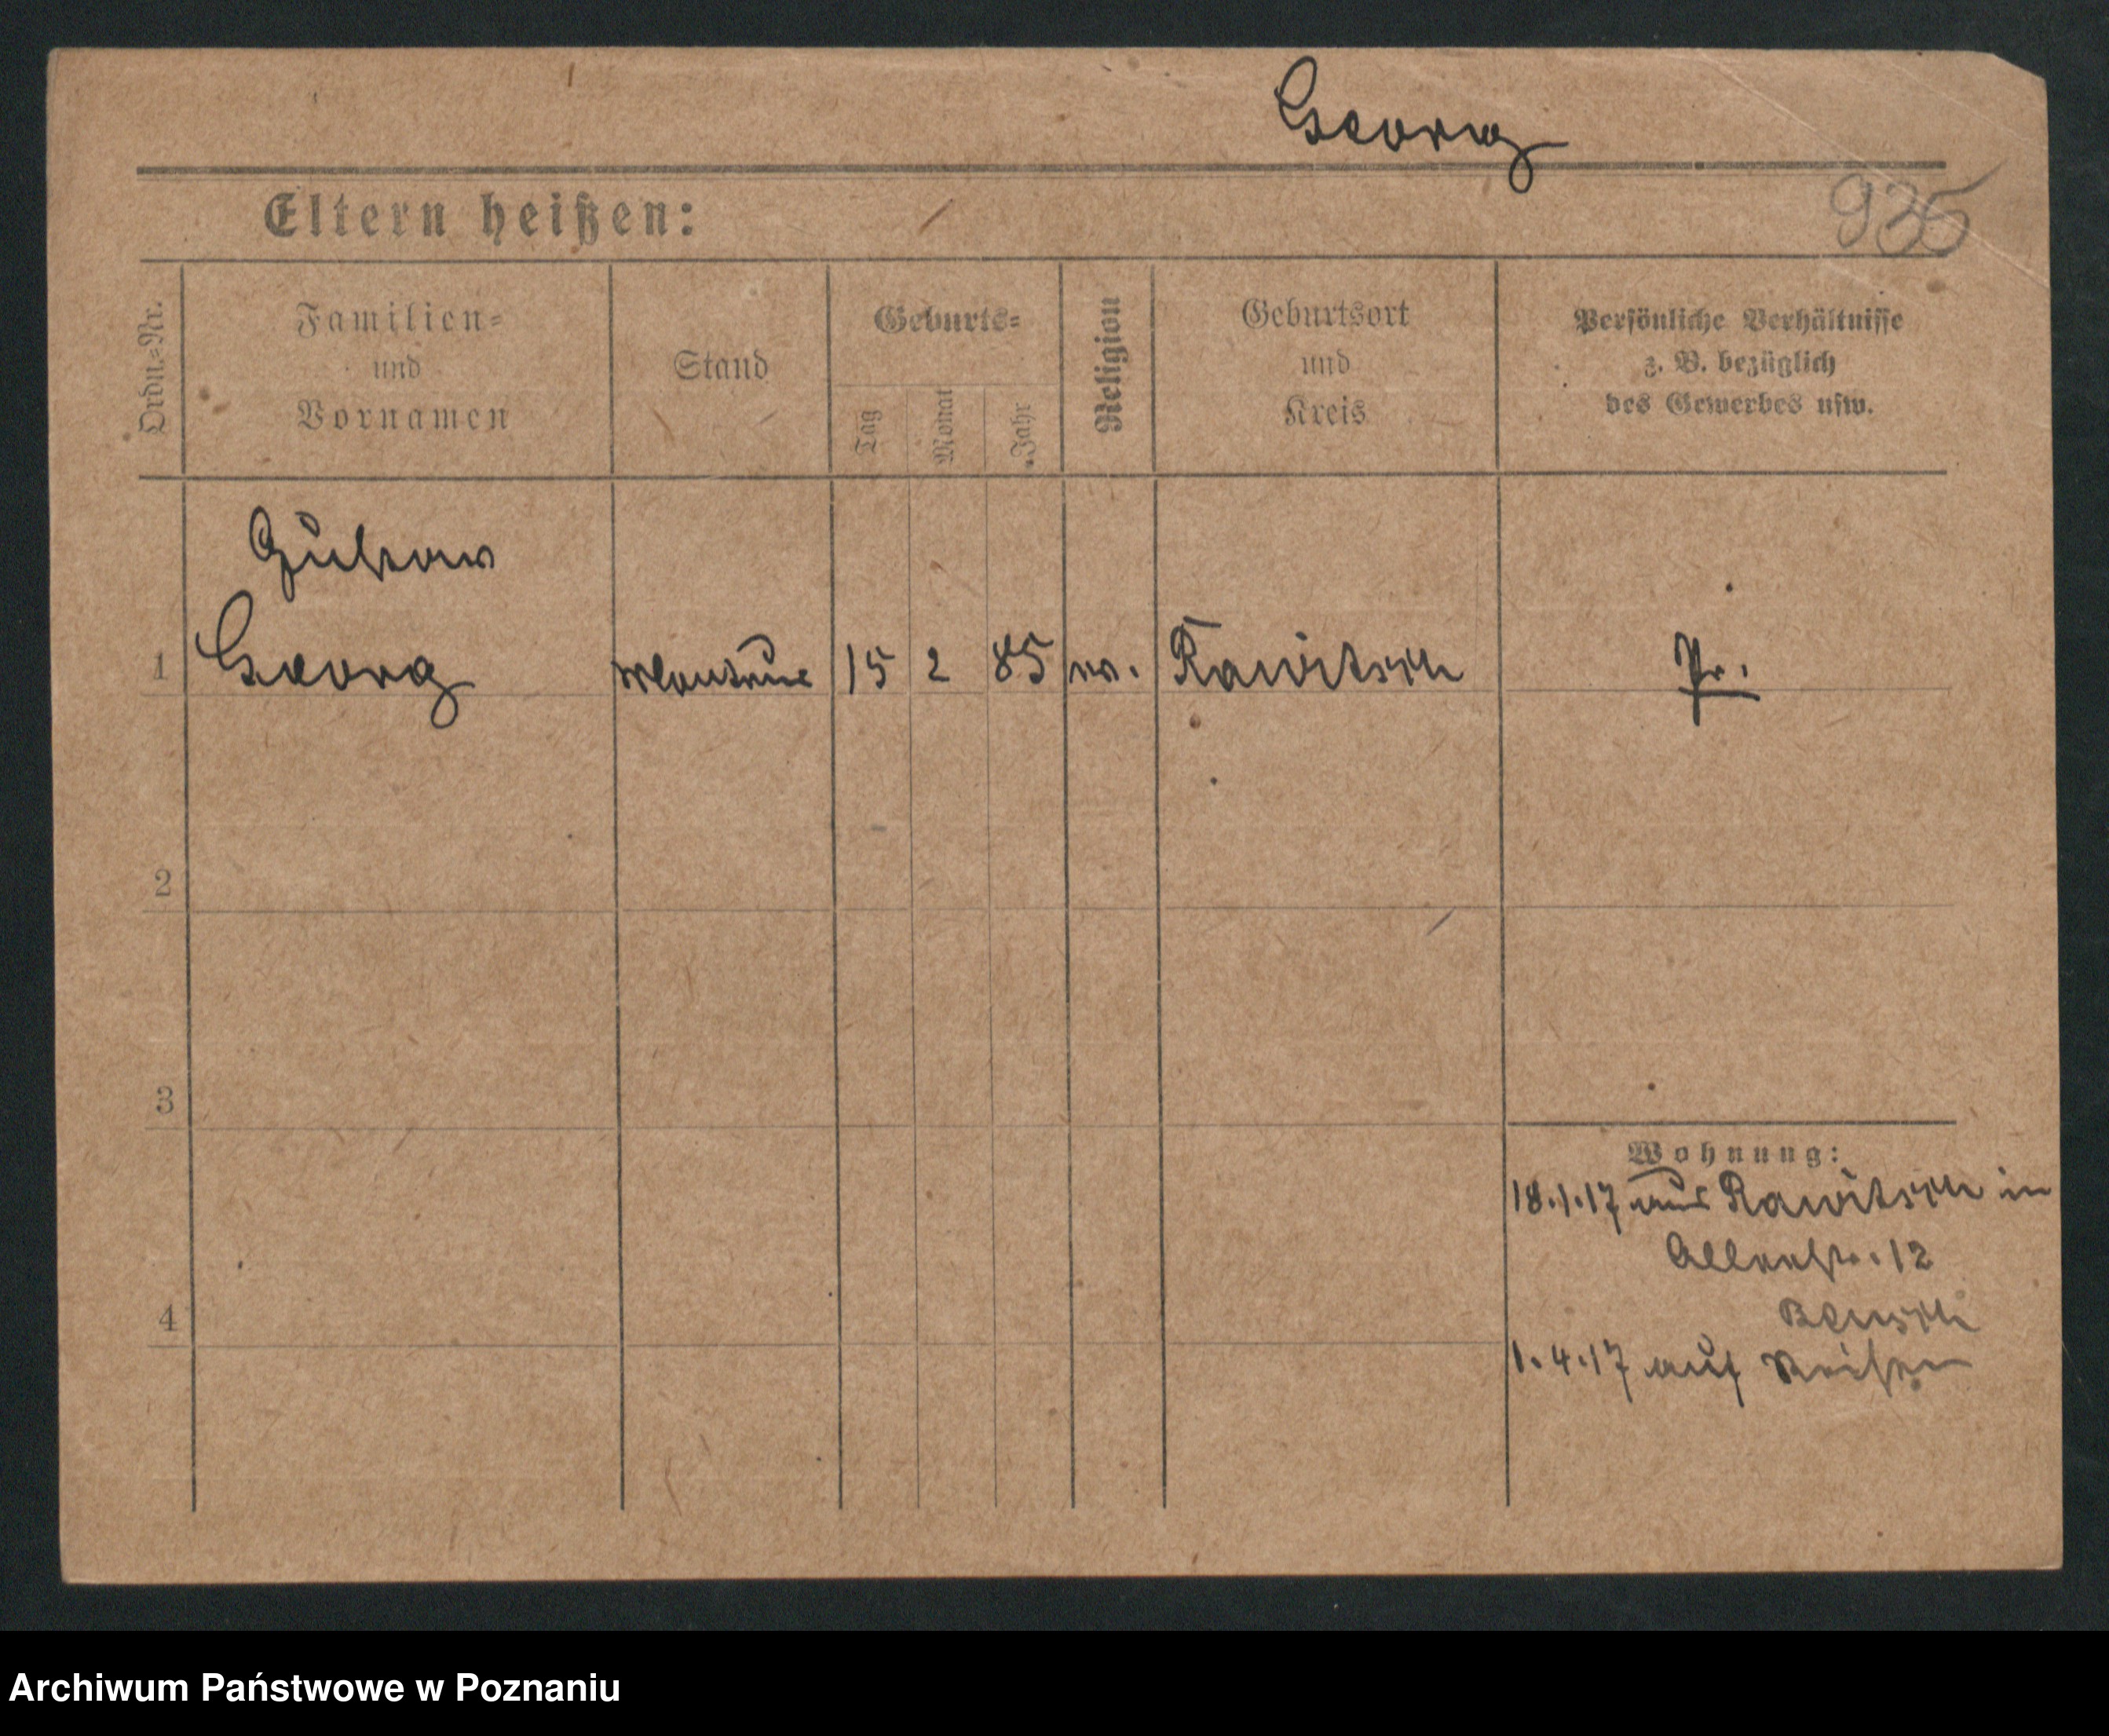 Georg
Eltern heißen:
935
Ordn.=Nr.
Familien=
und
Vornamen
Stand
Geburts=
Tag
Monat
Jahr
Religion
Geburtsort
und
Kreis
Persönliche Verhältnisse
z. B. bezüglich
des Gewerbes usw.
Gustav
1 Georg Monteur 15 2 85 ev. Rawitsch Pr.
2
3
4
Wohnung:
18.1.17 aus Rawitsch in
Allerstr. 12
1.4.17 auf Reisen
Archiwum Państwowe w Poznaniu